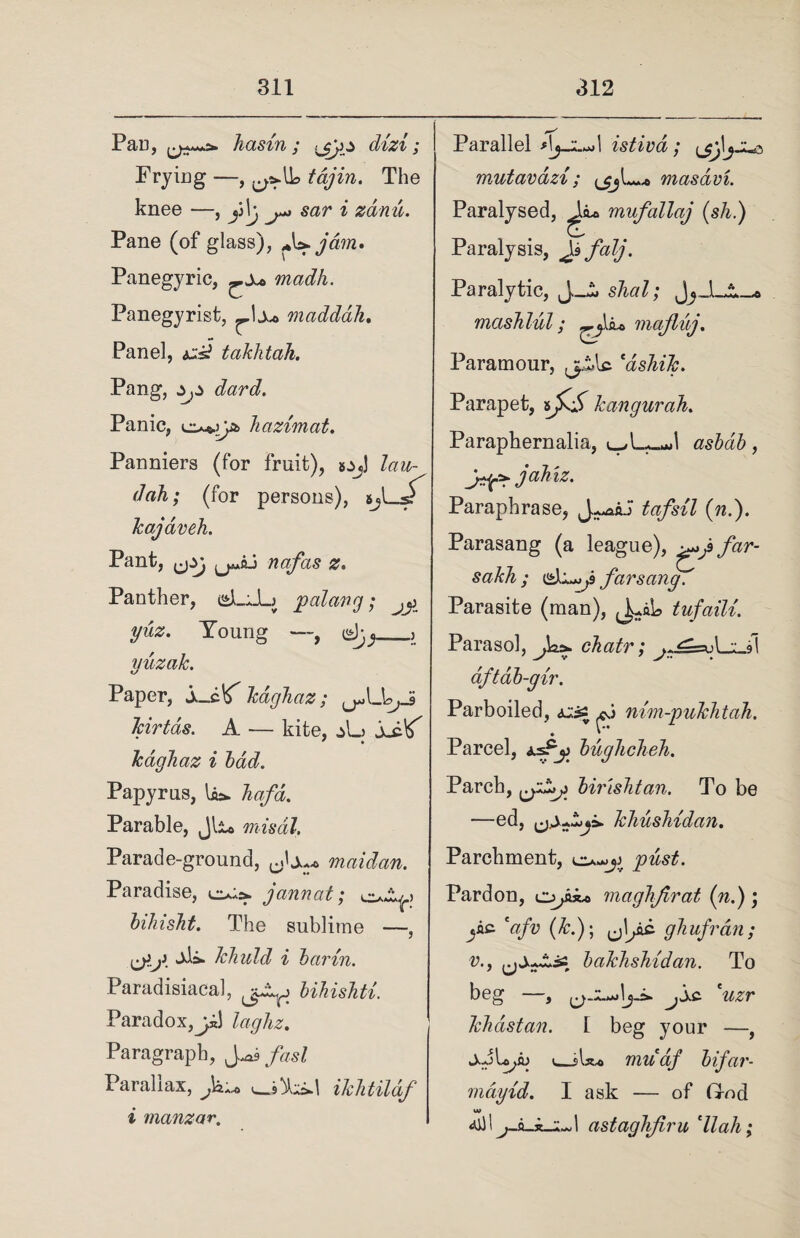 311
312
Pan, حسین hasín ; دیزی dízí ;
Frying —, طاجن tájin. The
knee —, سر زانو sar i zánú.
Pane (of glass), جام jám.
Panegyric, مدح madh.
Panegyrist, مداح maddáh.
Panel, تخته takhtah.
Pang, درد dard.
Panic, هزیمت hazímat.
Panniers (for fruit), لوده lau-
dah; (for persons), کجاوه
kajáveh.
Pant, نفس زدن nafas z.
Panther, پلنگ palang ; یوز
yúz. Young —, یوزک
yúzak.
Paper, کاغذ kághaz ; قرطاس
kirtás. A — kite, کاغذ باد
kághaz i bád.
Papyrus, حفا hafá.
Parable, مثال misál.
Parade-ground, میدان maidan.
Paradise, جنت jannat ; بهشت
bihisht. The sublime —,
خلد برین khuld i barín.
Paradisiacal, بهشتی bihishtí.
Paradox, لغز laghz.
Paragraph, فصل fasl
Parallax, اختلاف منظر ikhtiláf
i manzar.
Parallel استواء istivá ; متوازی
mutavází ; مساوی masáví.
Paralysed, مفلج mufallaj (sh.)
Paralysis, فلج falj.
Paralytic, شل shal ; مشلول
mashlúl ; مفلوج maflúj.
Paramour, عاشق ʿáshik.
Parapet, کنگره kangurah.
Paraphernalia, اسباب asbáb ,
جهیز jahíz.
Paraphrase, تفصیل tafsíl (n.).
Parasang (a league), فرسخ far-
sakh ; فرسنگ farsang.
Parasite (man), طفیلی tufailí.
Parasol, چطر chatr ; آفتاب‌گیر
áftáb-gír.
Parboiled, نیم پخته ním-pukhtah.
Parcel, بوغچه búghcheh.
Parch, برشتن birishtan. To be
—ed, خوشیدن khúshídan.
Parchment, پوست púst.
Pardon, مغفرت maghfirat (n.) ;
عفو ʿafv (k.); غفران ghufrán ;
v., بخشیدن bakhshídan. To
beg —, عذر خواستن ʿuzr
khástan. I beg your —,
معاف بفرمایید muʿáf bifar-
máyíd. I ask — of God
استغفر الله astaghfiru ʿllah ;